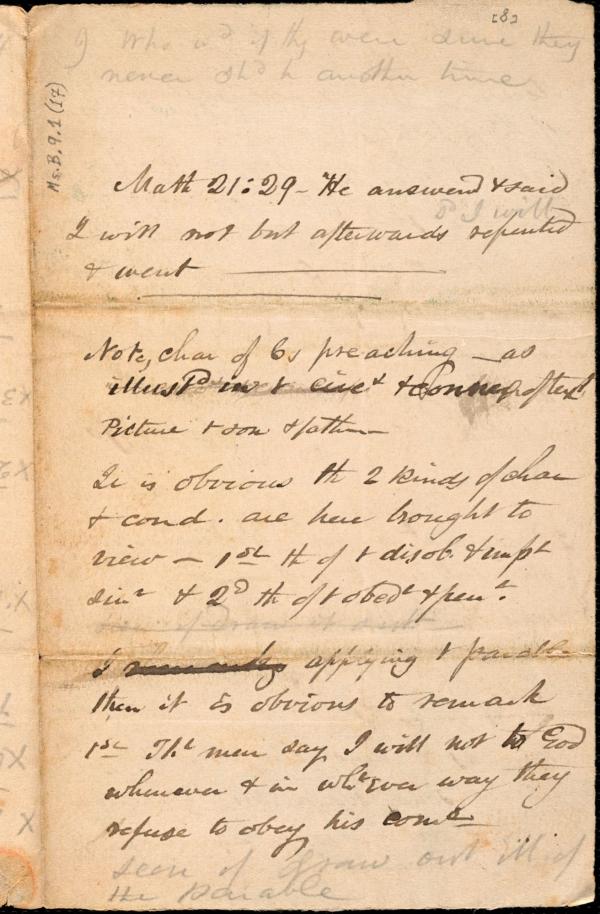 [8]
I who wd if thy were sure they
never shd h another time
Ms. B. 9. 1 (17)
Math 21:29 - He answerd & said
I will
I will not but afterwards repented
& went
Note, char of Cs preaching - as
illustd in t circt & Connex of text
Picture t son & father
It is obvious th 2 kinds of char
& cond. are here brought to
view - 1st th of t disob. & impt
sinr & 2d th of t obedt & pent.
I applying t parable
then it is obvious to remark
1st Tht men say I will not to God
whenever & in whtever way they
refuse to obey his comts
of draw out ill of
the parable